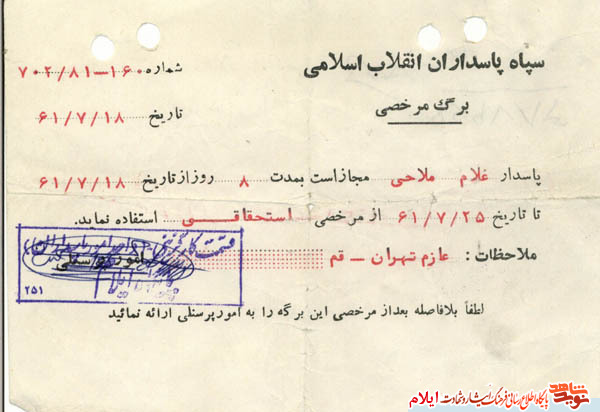 سپاه پاسداران انقلاب اسلامی
برگ مرخصی
شماره ۱۶۰-۷۰۲/۸۱
تاریخ ۶۱/۷/۱۸
پاسدار غلام ملاحی مجاز است بمدت ۸ روز از تاریخ ۶۱/۷/۱۸
تا تاریخ ۶۱/۷/۲۵ از مرخصی استحقاقی استفاده نماید.
ملاحظات : عازم تهران – قم
امور پرسنلی
۲۵۱
لطفاً بلافاصله بعد از مرخصی این برگه را به امور پرسنلی ارائه نمائید
نوید شاهد
پایگاه اطلاع رسانی فرهنگ ایثار و شهادت ایلام